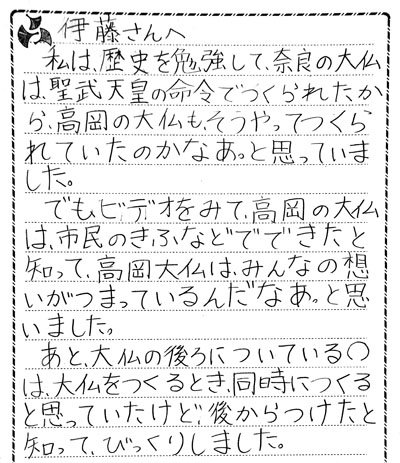 伊藤さんへ
私は、歴史を勉強して、奈良の大仏
は、聖武天皇の命令でつくられたか
ら、高岡の大仏も、そうやってつくら
れていたのかなあっと思っていま
した。
でも、ビデオをみて、高岡の大仏
は、市民のきふなどでできたと
知って、高岡大仏は、みんなの想
いがつまっているんだなあっと思
いました。
あと、大仏の後ろについている〇
は、大仏をつくるとき、同時につくる
と思っていたけど、後からつけたと
知って、びっくりしました。